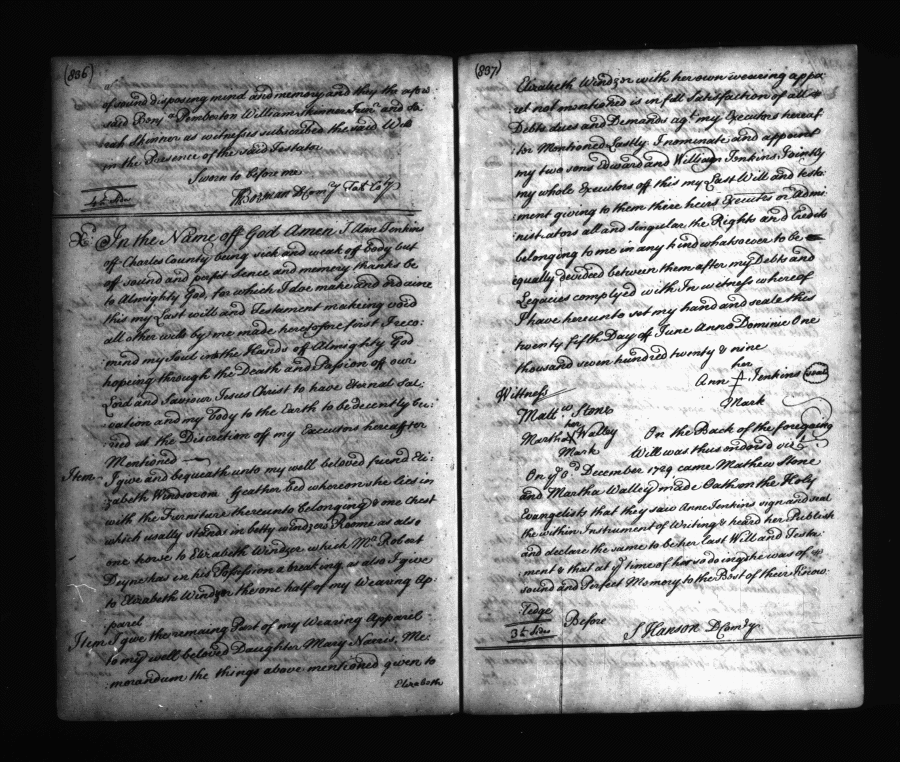 (836)
of sound disposing mind and memory and they the afore
said Benj.a Pemberton William Skinner Jun.r and Sa
rah Skinner as witnesses subscribed the said Will
in the Presence of the said Testator
Sworn to before me
In the Name off God Amen I Ann Jenkins
off Charles County being sick and weak off body but
off sound and perfect sence and memory thanks be
to Almighty God, for which I doe make and ordaine
this my Last will and Testament making void
all other wills by me made heretofore first I reco:
mind my Soul into the Hands of Almighty God
hopeing through the Death and Passion off our
Lord and Saviour Jesus Christ to have Eternal Sal:
vation and my body to the Earth to be decently bu:
ried at the Discretion off my Executors hereafter
Mentioned
Item I give and bequeath unto my well beloved friend Eli:
zabeth Windsor one feather bed whereon she lies in
with the Furniture thereunto belonging & one Chest
which usally stands in betty windzors Roome as also
one horse to Elizabeth Windzor which Mr. Robert
Deyne has in his Possession a breaking, as also I give
to Elizabeth Windzor the one half of my Wearing Ap:
parel
Item I give the remaing Part of my Wearing Apparel
to my well beloved Daughter Mary Norris, Me:
morandum the things above mentioned given to
Elizabeth
(837)
Elizabeth Windzor with her own wearing appa
rel not mentioned is in full Satisfaction of all
Debts dues and Demands ag.t my Executors hereaf
ter Mentioned Lastly I nominate and appoint
my two sons Edward and William Jenkins Jointly
my whole Executors off this my Last Will and testa
ment giving to them there heirs Executrs or Admi
nistrators all and singular the Rights and Credets
belonging to me in any kind whatsoever to be
equally devided between them after my Debts and
Legacies complyed with In witness whereof
I have hereunto set my hand and seale this
twenty fifth Day off June Anno Dominie One
thousand seven hundred twenty & nine
her
Ann A Jenkins (seal)
Mark
Wittness
Matt.w Stone
her
Martha Walley
Mark
On the Back of the foregoing
Will was thus endors'd viz.t
On y.e 6.d December 1729 came Mathew Stone
and Martha Walley made Oath on the Holy
Evangelists that they saw Anne Jenkins sign and seal
the within Instrument of Writing & heard her Publish
and declare the same to be her Last Will and Testa:
ment & that at y.e time of her so doing she was of
sound and Perfect Memory to the Best of their Know:
ledge
Before
3 1/2 sides
S Hanson D Com.ry